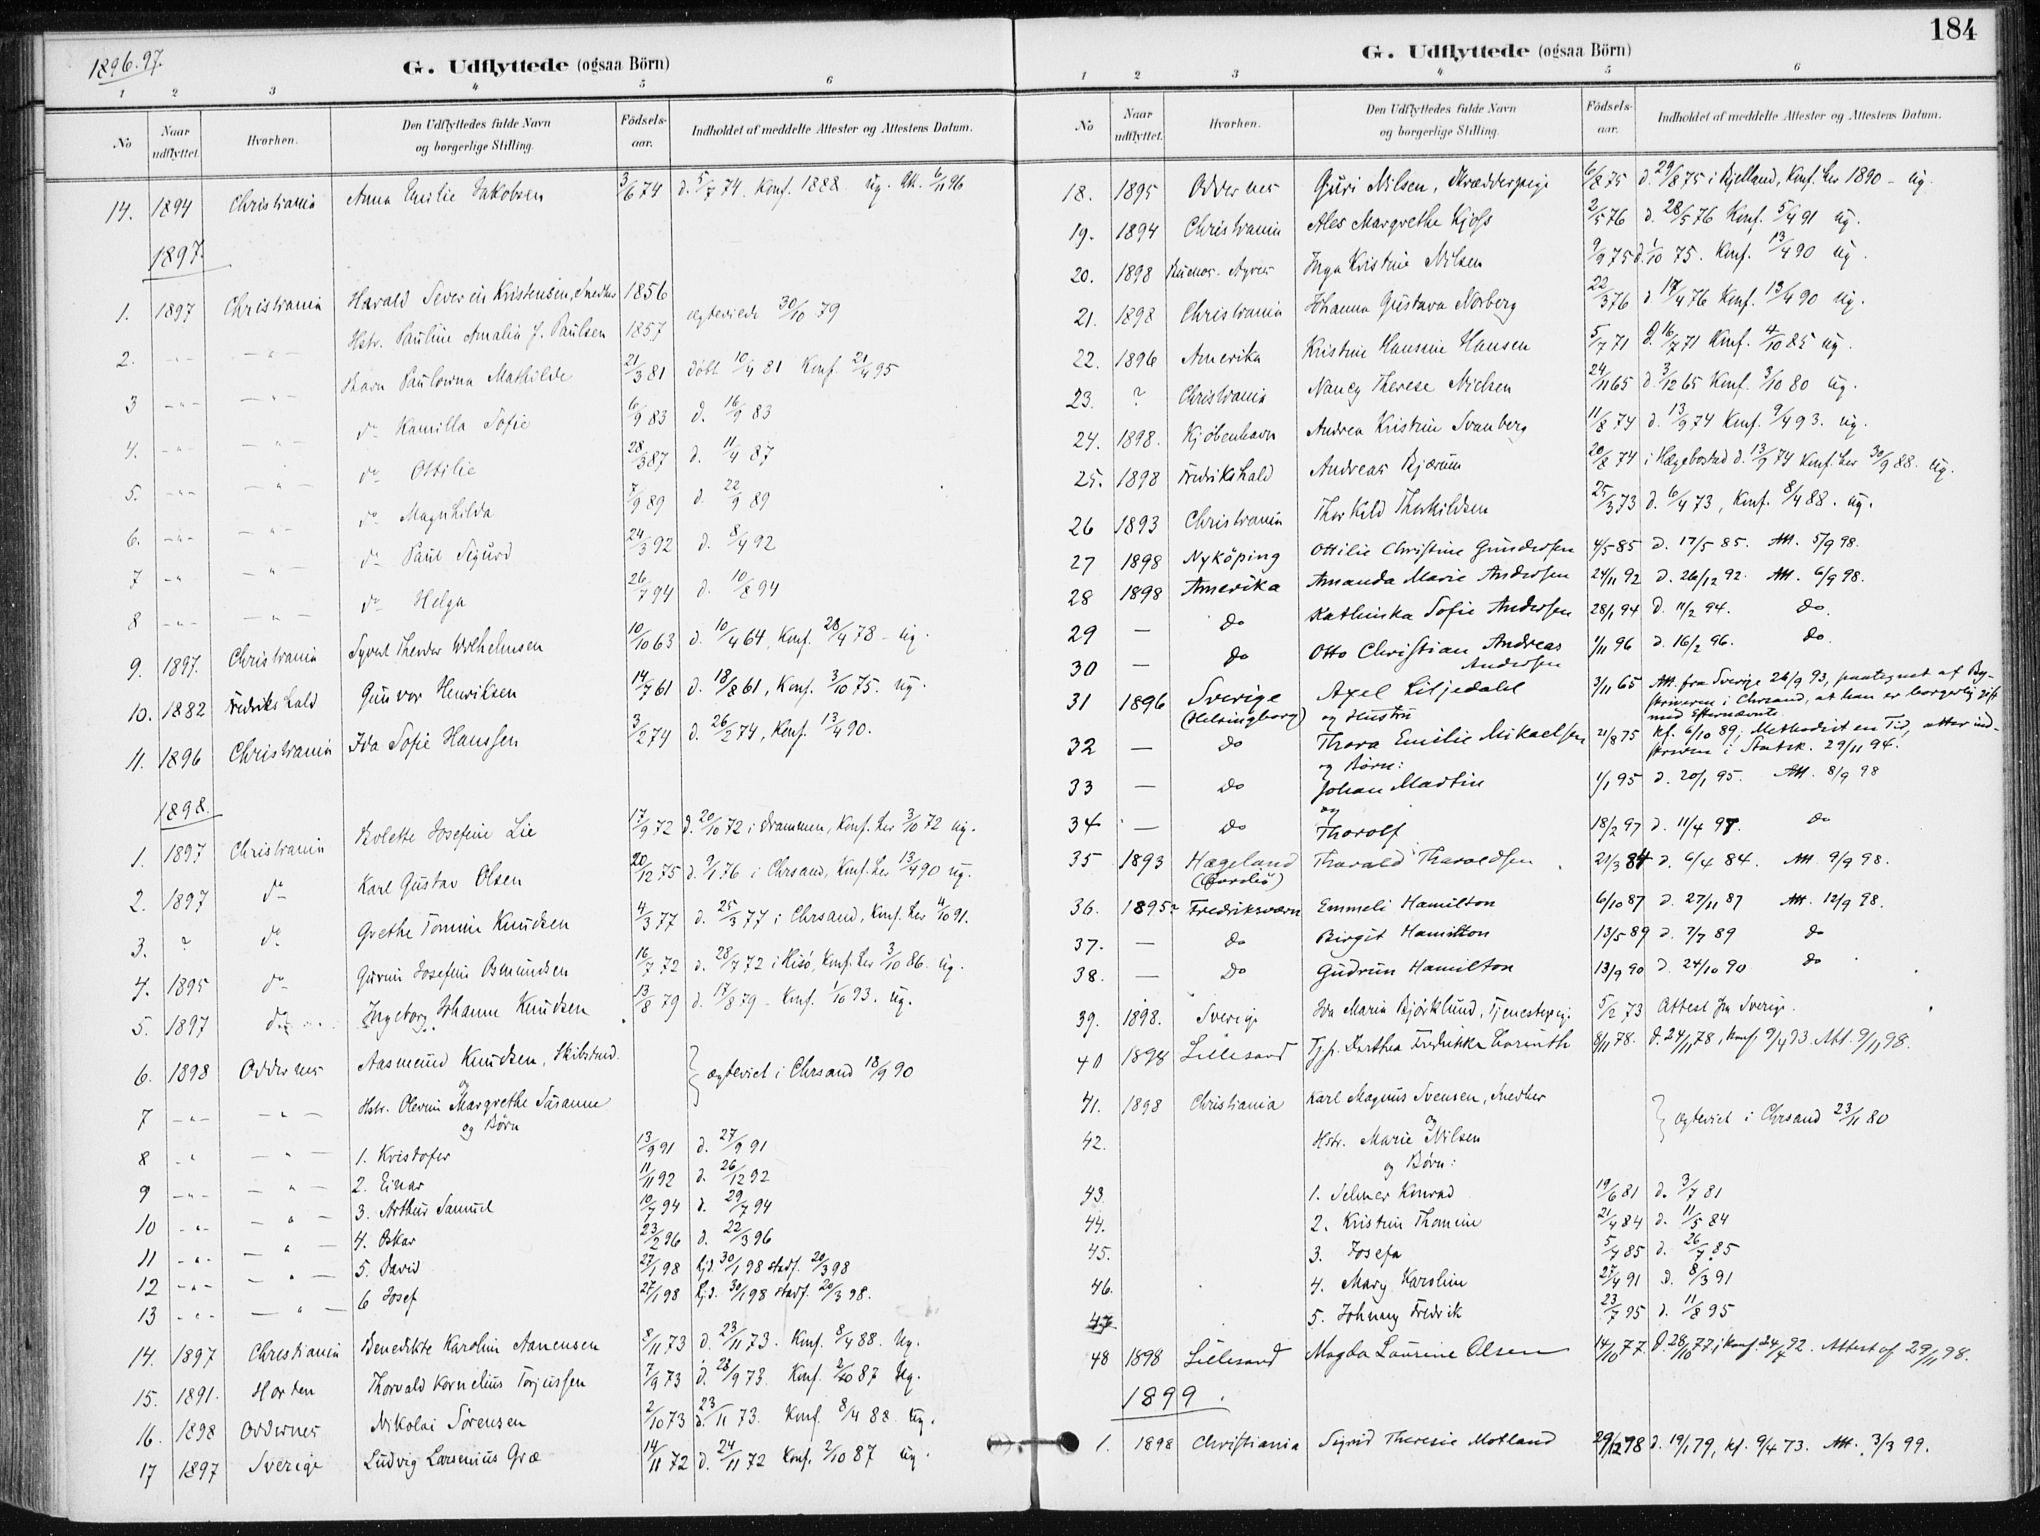 1896.97.
G. Udflyttede (ogsaa Börn)
1 2 3 4 5 6
No Naar udflyttet. Hvorhen. Den Udflyttedes fulde Navn og borgerlige Stilling. Födsels-aar. Indholdet af meddelte Attester og Attestens Datum.
14. 1894 Christiania Anna Emilie Jakobsen 3/6 74 d. 5/7 74. Konf. 1888. ug. Att. 6/11 96
1897.
1. 1897 Christiania Harald Severin Kristensen, Snedker 1856
2. -"- -"- Hstr. Pauline Amalia J. Paulsen 1857 ægteviede 30/10 79
3 -"- -"- Barn Paulowna Mathilde 21/3 81 döbt 10/4 81 Konf. 21/4 95
4. -"- -"- do Kamilla Sofie 6/9 83 d. 16/9 83
5. -"- -"- do Ottilie 28/3 87 d. 11/4 87
6. -"- -"- do Magnhilda 7/9 89 d. 22/9 89
7 -"- -"- do Paul Sigurd 24/3 92 d. 8/4 92
8 -"- -"- do Helga 26/7 94 d. 10/8 94
9. 1897. Christiania Syvert Theodor Wilhelmsen 10/10 63 d. 10/4 64, Konf. 28/4 78 - ug.
10. 1882 Fredrikshald Gunvor Henriksen 14/7 61 d. 18/8 61, Konf. 3/10 75. ug.
11. 1896 Christiania Ida Sofie Hanssen 3/2 74 d. 26/2 74, Konf. 13/4 90.
1898.
1. 1897 Christiania Bolette Josefine Lie 17/9 72 d. 20/10 72 i Drammen, Konf. her 3/10 72 ug.
2. 1897 do Karl Gustav Olsen 20/12 75 d. 9/1 76 i Chrsand, Konf. her 13/4 90 ug.
3. ? do Grethe Tomine Knudsen 4/3 77 d. 25/3 77 i Chrsand, Konf. her 4/10 91.
4. 1895 do Gurine Josefine Osmundsen 16/7 72 d. 28/7 72 i Hisö, Konf. her 3/10 86. ug.
5. 1897 do Ingeborg Johanne Knudsen 13/8 79 d. 17/8 79 - Konf. 1/10 93. ug.
6. 1898 Oddernes Aasmund Knudsen, Skibstmd.
og
7 -"- -"- Hstr. Olevine Margrethe Susanne ægteviet i Chrsand 18/9 90
og Børn
8 -"- -"- 1. Kristofer 13/9 91 d. 27/9 91
9 -"- -"- 2. Einar 11/11 92 d. 26/12 92
10 -"- -"- 3. Arthur Samuel 10/7 94 d. 29/7 94
11 -"- -"- 4. Oskar 23/2 96 d. 22/3 96
12 -"- -"- 5. David 27/1 98 hjd. 30/1 98 stadf. 20/3 98
13 -"- -"- 6 Josef 27/1 98 hjd. 30/1 98 stadf. 20/3 98.
14. 1897 Christiania Benedikte Karoline Aanensen 8/11 73 d. 23/11 73. Konf. 8/4 88. Ug.
15. 1891. Horten Thorvald Kornelius Torjussen 7/9 73 d. 28/9 73. Konf. 2/10 87 Ug.
16. 1898 Oddernes Nikolai Sörensen 2/10 73 d. 23/11 73. Konf. 8/4 88. Ug.
17 1897 Sverige Ludvig Larsenius Græ 14/11 72 d. 24/11 72 Konf. 2/10 87 ug.
184
G. Udflyttede (ogsaa Börn)
1 2 3 4 5 6
No Naar udflyttet. Hvorhen. Den Udflyttedes fulde Navn og borgerlige Stilling. Födsels-aar. Indholdet af meddelte Attester og Attestens Datum.
18. 1895 Oddernes Guri Nilsen, Skrædderpige 6/8 75 d. 29/8 75 i Bjelland, Konf. her 1890 - ug.
19. 1894 Christiania Ales Margrethe Kjoss 2/5 76 d. 28/5 76 Konf. 5/4 91 ug.
20. 1898 Buenos-Ayres Inga Kristine Nilsen 9/9 75 d. 1/10 75. Konf. 13/4 90 ug.
21. 1898 Christiania Johanna Gustava Norberg 22/3 76 d. 17/4 76 Konf. 13/4 90 ug.
22. 1896 Amerika Kristine Hansine Hansen 5/7 71 d. 16/7 71 Konf. 4/10 85 ug.
23. ? Christiania Nancy Therese Nielsen 24/11 65 d. 3/12 65 Konf. 3/10 80 ug.
24. 1898. Kjøbenhavn Andrea Kristine Svanberg 11/8 74 d. 13/9 74 Konf. 9/4 93. ug.
25. 1898 Fredrikshald Andreas Bjærum 20/8 74 i Hægebostad d. 13/9 74 Konf. her 30/9 88. ug.
26 1893 Christiania Thorkild Thorkildsen 25/3 73 d. 6/4 73, Konf. 8/4 88. ug.
27 1898 Nyköping Ottilie Christine Gundersen 4/5 85 d. 17/5 85. Att. 5/9 98.
28 1898 Amerika Amanda Marie Andersen 24/11 92 d. 26/12 92. Att. 6/9 98.
29 — do Kathinka Sofie Andersen 28/1 94 d. 11/2 94. do.
30 — do Otto Christian Andreas Andersen 1/11 96 d. 16/2 96. do.
31 1896 Sverige (Helsingborg) Axel Liljedahl 3/11 65 Att. fra Sverige 26/9 93, paategnet af By-
skriveren i Chrsand, at han er borgerlig gift
og Hustru med Efternævnte.
32 — do Thora Emilie Mikaelsen 21/8 75 Kf. 6/10 89; Methodist en Tid, atter ind-
skreven i Statsk. 29/11 94.
og Børn:
33 — do Johan Martin 1/1 95 d. 20/1 95. Att. 8/9 98
og
34 — do Thorolf 18/2 97 d. 11/4 97. do
35 1893 Hægeland Tharald Tharaldsen 21/3 84 d. 6/4 84. Att. 9/9 98.
36. 1895? Fredriksværn Emmeli Hamilton 6/10 87 d. 27/11 87 Att. 12/9 98.
37. — do Birgit Hamilton 13/5 89 d. 7/7 89 do
38. — do Gudrun Hamilton 13/9 90 d. 24/10 90 do
39. 1898. Sverige Ida Maria Bjørklund, Tjenestepige 5/2 73 Attest fra Sverige.
40 1898 Lillesand Tjp. Dorthea Fredrikke Corinth 8/11 78. d. 24/11 78, Konf 9/4 93. Att. 9/11 98.
41. 1898 Christiania Karl Magnus Svensen, Snedker
og ægteviet i Chrsand 23/11 80
42. Hstr. Marie Nilsen
og Børn:
43. 1. Selmer Konrad 19/6 81 d. 3/7 81
44. 2. Kristine Thomine 21/4 84 d. 11/5 84
45. 3. Josefa 5/7 85 d. 26/7 85
46. 4. Mary Karoline 27/4 91 d. 8/3 91
47. 5. Johnny Fredrik 23/7 95 d. 11/8 95
48 1898 Lillesand Magda Laurine Olsen 14/10 77. d. 28/10 77; Konf. 24/4 92. Attest af 29/11 98.
1899.
1. 1898 Christiania Sigrid Theresie Motland 29/12 78 d. 19/1 79, kf. 9/4 73. Att. 3/3 99.